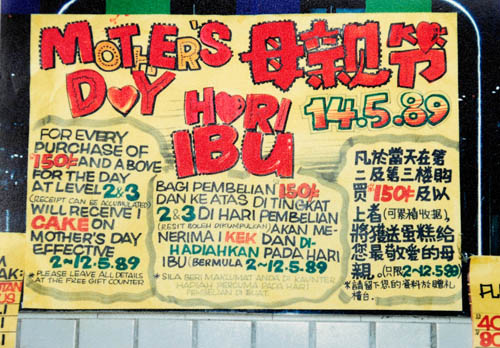 MOTHER'S
DAY
母親节
HARI
IBU
14.5.89
FOR EVERY
PURCHASE OF
150/= AND ABOVE
FOR THE DAY
AT LEVEL 2&3
(RECEIPT CAN BE ACCUMULATED)
WILL RECEIVE 1
CAKE ON
MOTHER'S DAY
EFFECTIVE
2~12.5.89
* PLEASE LEAVE ALL DETAILS
AT THE FREE GIFT COUNTER
BAGI PEMBELIAN 150/=
DAN KE ATAS DI TINGKAT
2&3 DI HARI PEMBELIAN
(RESIT BOLEH DIKUMPULKAN) AKAN ME-
NERIMA 1 KEK DAN DI-
HADIAHKAN PADA HARI
IBU (BERMULA 2~12.5.89)
* SILA BERI MAKLUMAT ANDA DI KAUNTER
HADIAH PERCUMA PADA HARI
PEMBELIAN DI BUAT.
凡於當天在第
二及第三楼购
買 150/= 及以
上者(可累積收据),
將獲送蛋糕給
您最敬愛的母
親。(只限2~12.5.89)
*請留下您的資料於贈礼
檯台.
AK:
40
80